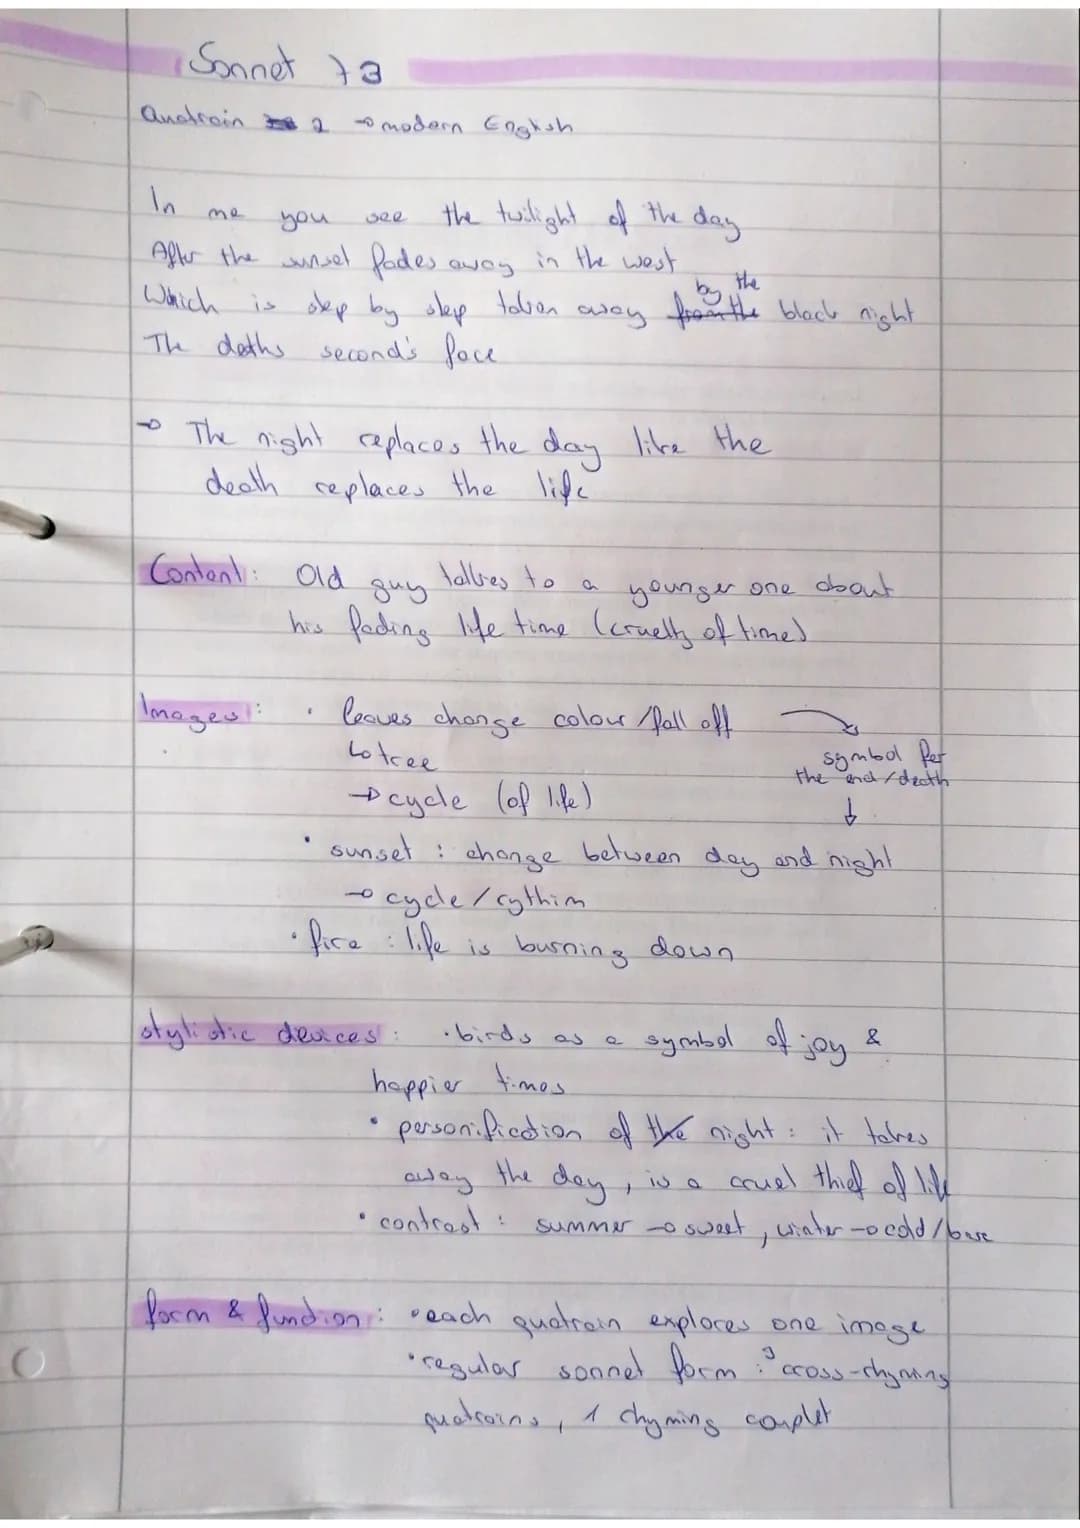 Sonnet 73
Quatrain 2 → modern English
In me you see the twilight of the day
After the sunset fades away in the west
Which is step by step taken away by the black night
The deths second's face
→ The night replaces the day like the
death replaces the life
Content: Old guy talkes to a younger one about
his fading life time (cruelty of time)
Images: • leaves change colour / fall off
↳ tree
→ cycle (of life)
symbol for
the end / death
↓
• sunset : change between day and night
→ cycle / rythim
• fire : life is burning down
stylistic devices: • birds as a symbol of joy &
happier times
• personification of the night : it takes
away the day, is a cruel thief of life
• contrast : summer → sweet, winter → cold / bare
form & function: • each quatrain explores one image
• regular sonnet form : 3 cross-rhyming
quatrains, 1 rhyming couplet